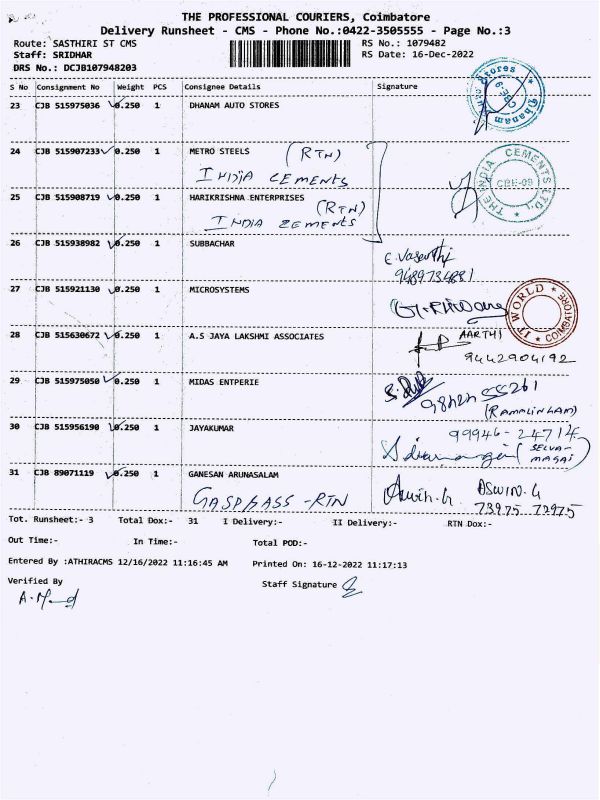 THE PROFESSIONAL COURIERS, Coimbatore
Delivery Runsheet - CMS - Phone No.:0422-3505555 - Page No.:3
Route: SASTHIRI ST CMS
RS No.: 1079482
Staff: SRIDHAR
RS Date: 16-Dec-2022
DRS No.: DCJB107948203
S No Consignment No Weight PCS Consignee Details Signature
23 CJB 515975036 0.250 1 DHANAM AUTO STORES
24 CJB 515907233 0.250 1 METRO STEELS (RTN)
INDIA CEMENTS
THE INDIA CEMENTS LTD. CBE-09
25 CJB 515908719 0.250 1 HARIKRISHNA ENTERPRISES (RTN)
INDIA CEMENTS
26 CJB 515938982 0.250 1 SUBBACHAR
9489734881
27 CJB 515921130 0.250 1 MICROSYSTEMS
IT WORLD COIMBATORE
28 CJB 515630672 0.250 1 A.S JAYA LAKSHMI ASSOCIATES AARTHI
9442904192
29 CJB 515975050 0.250 1 MIDAS ENTPERIE
(RAMALINGAM)
30 CJB 515956190 0.250 1 JAYAKUMAR 99946-24714
(SELVA-
MAGAI)
31 CJB 89071119 0.250 1 GANESAN ARUNASALAM
Aswin.G ASWIN.G
RTN 73975 72975
Tot. Runsheet:- 3 Total Dox:- 31 I Delivery:- II Delivery:- RTN Dox:-
Out Time:- In Time:- Total POD:-
Entered By :ATHIRACMS 12/16/2022 11:16:45 AM Printed On: 16-12-2022 11:17:13
Verified By Staff Signature